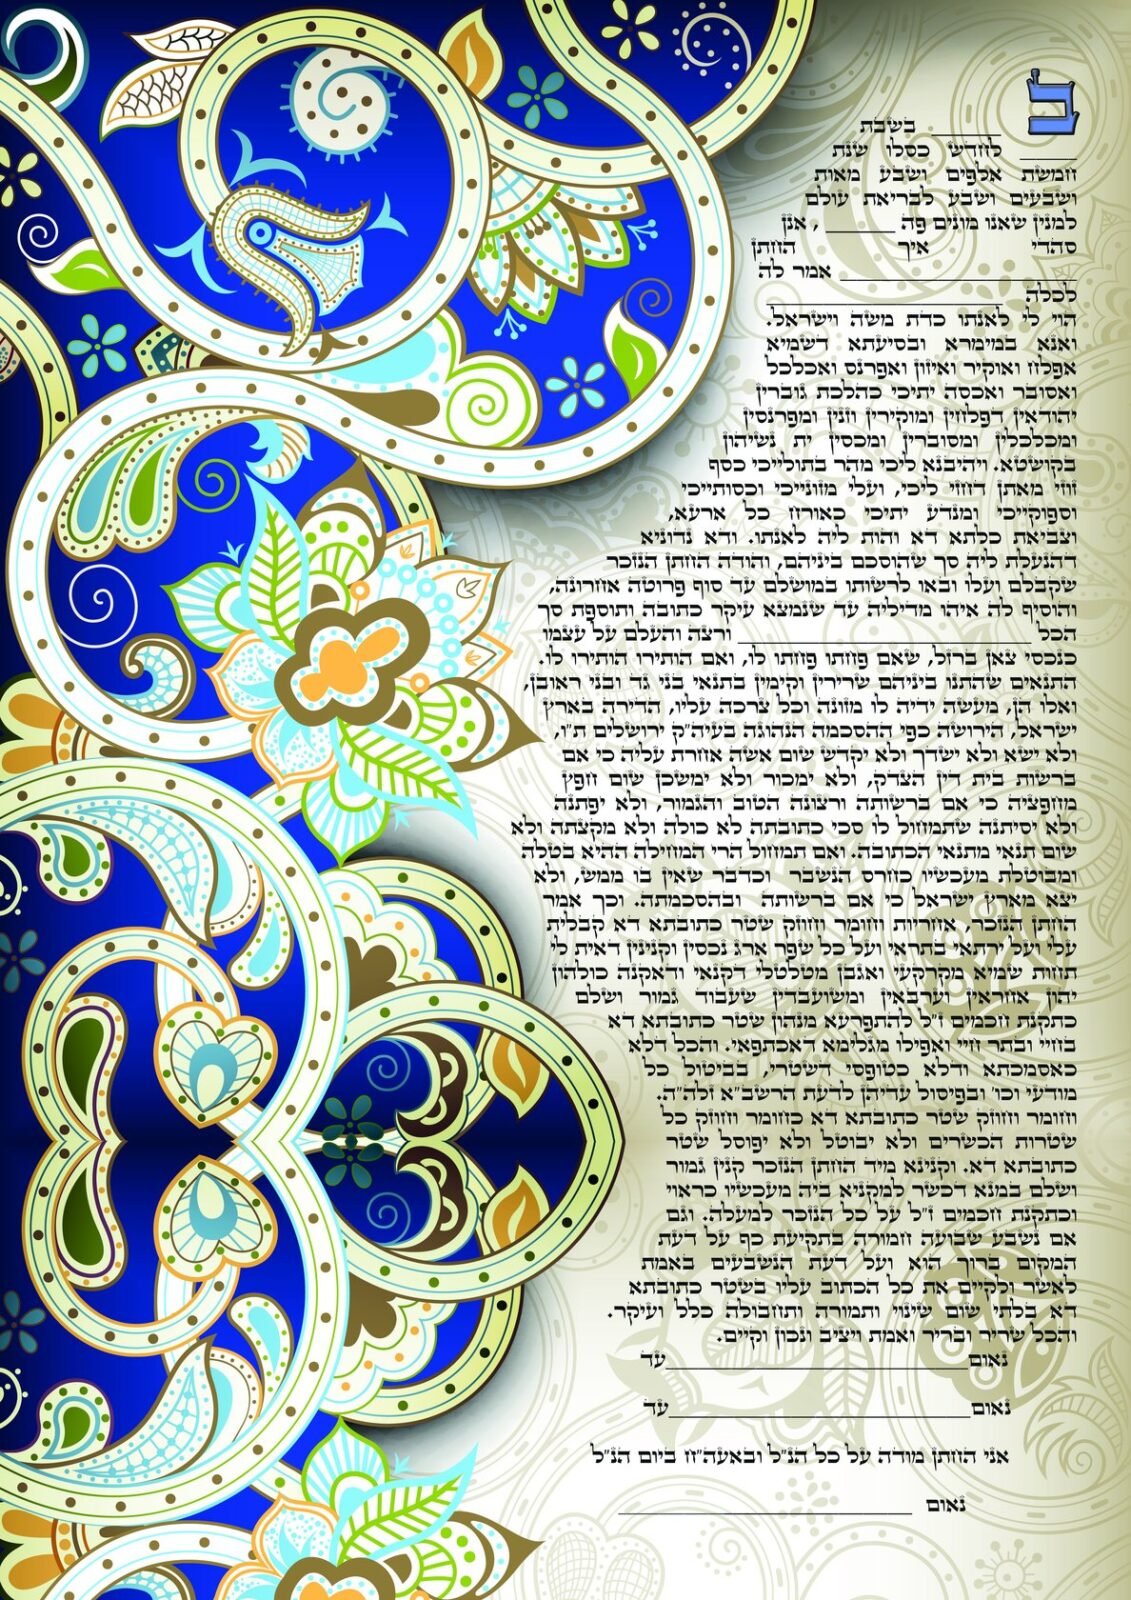 ב
_____ בשבת
____ לחדש כסלו שנת
חמשת אלפים ושבע מאות
ושבעים ושבע לבריאת עולם
למנין שאנו מונים פה _____ , אנן
סהדי איך החתן
_________________ אמר לה
לכלה _________________
הוי לי לאנתו כדת משה וישראל.
ואנא במימרא ובסיעתא דשמיא
אפלח ואוקיר ואיזון ואפרנס ואכלכל
ואסובר ואכסה יתיכי כהלכת גוברין
יהודאין דפלחין ומוקירין וזנין ומפרנסין
ומכלכלין ומסוברין ומכסין ית נשיהון
בקושטא. ויהיבנא ליכי מהר בתולייכי כסף
זוזי מאתן דחזי ליכי, ועלי מזונייכי וכסותייכי
וספוקייכי ומנדע יתיכי כאורח כל ארעא,
וצביאת כלתא דא והות ליה לאנתו. ודא נדוניא
דהנעלת ליה סך שהוסכם ביניהם, והודה החתן הנזכר
שקבלם ועלו ובאו לרשותו במושלם עד סוף פרוטה אחרונה,
והוסיף לה איהו מדיליה עד שנמצא עיקר כתובה ותוספת סך
הכל _________________ ורצה והעלם על עצמו
כנכסי צאן ברזל, שאם פחתו פחתו לו, ואם הותירו הותירו לו.
התנאים שהתנו ביניהם שרירין וקימין בתנאי בני גד ובני ראובן,
ואלו הן, מעשה ידיה לו מזונה וכל צרכה עליו, הדירה בארץ
ישראל, הירושה כפי ההסכמה הנהוגה בעיה״ק ירושלים ת״ו,
ולא ישא ולא ישדך ולא יקדש שום אשה אחרת עליה כי אם
ברשות בית דין הצדק, ולא ימכור ולא ימשכן שום חפץ
מחפציה כי אם ברשותה ורצונה הטוב והגמור, ולא יפתנה
ולא יסיתנה שתמחול לו סכי כתובתה לא כולה ולא מקצתה ולא
שום תנאי מתנאי הכתובה. ואם תמחול הרי המחילה ההיא בטלה
ומבוטלת מעכשיו כחרס הנשבר וכדבר שאין בו ממש, ולא
יצא מארץ ישראל כי אם ברשותה ובהסכמתה. וכך אמר
החתן הנזכר, אחריות וחומר וחוזק שטר כתובתא דא קבלית
עלי ועל ירתאי בתראי ועל כל שפר ארג נכסין וקנינין דאית לי
תחות שמיא מקרקעי ואגבן מטלטלי דקנאי ודאקנה כולהון
יהון אחראין וערבאין ומשועבדין שעבוד גמור ושלם
כתקנת חכמים ז״ל להתפרעא מנהון שטר כתובתא דא
בחיי ובתר חיי ואפילו מגלימא דאכתפאי. והכל דלא
כאסמכתא ודלא כטופסי דשטרי, בביטול כל
מודעי וכו׳ ובפיסול עדיהן לדעת הרשב״א זלה״ה.
וחומר וחוזק שטר כתובתא דא כחומר וחוזק כל
שטרות הכשרים ולא יבוטל ולא יפוסל שטר
כתובתא דא. וקנינא מיד החתן הנזכר קנין גמור
ושלם במנא דכשר למקניא ביה מעכשיו כראוי
וכתקנת חכמים ז״ל על כל הנזכר למעלה. וגם
אם נשבע שבועה חמורה בתקיעת כף על דעת
המקום ברוך הוא ועל דעת הנשבעים באמת
לאשר ולקיים את כל הכתוב עליו בשטר כתובתא
דא בלתי שום שינוי ותמורה ותחבולה כלל ועיקר.
והכל שריר ובריר ואמת ויציב ונכון וקיים.
נאום_________________עד
נאום_________________עד
אני החתן מודה על כל הנ״ל ובאעה״ח ביום הנ״ל
נאום _________________